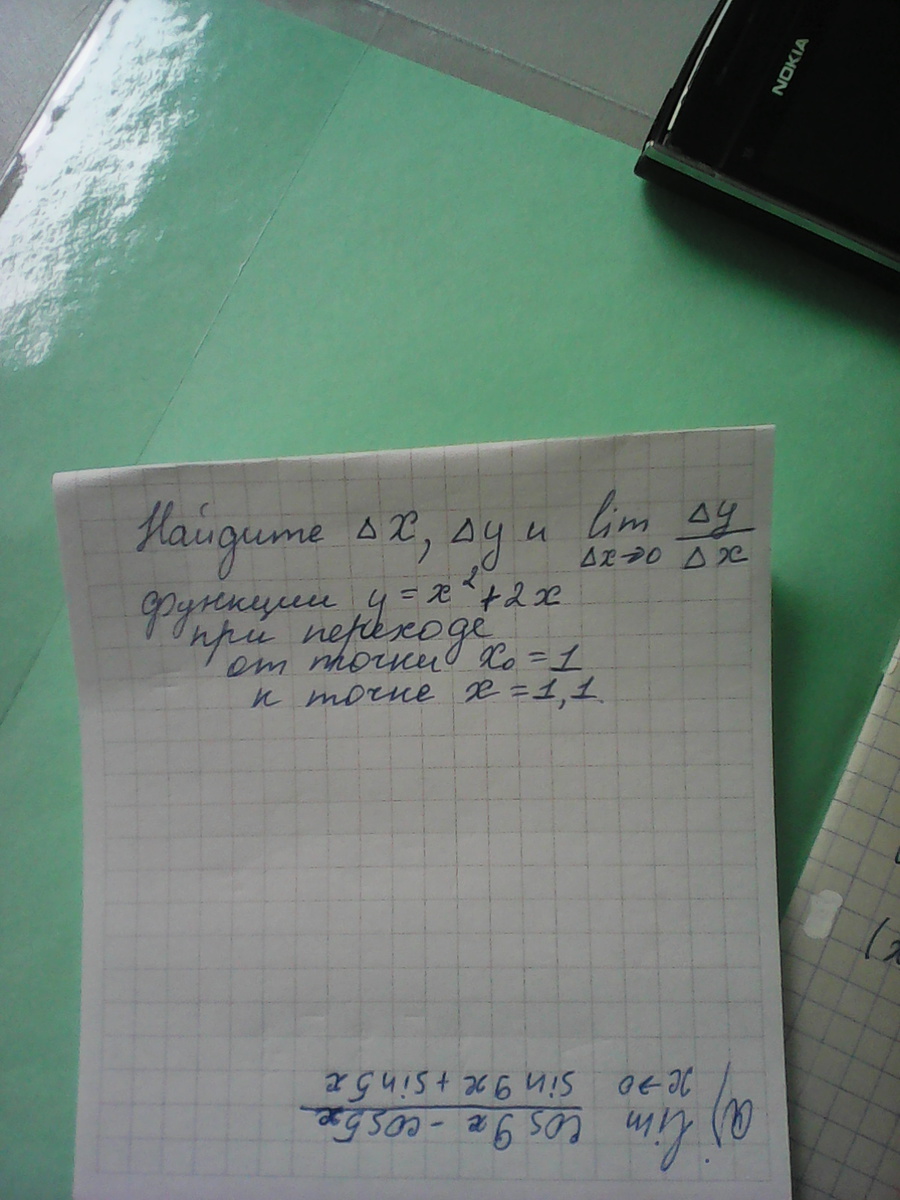 NOKIA
Найдите Δx, Δy и lim Δy
Δx→0 Δx
функции y = x² + 2x
при переходе
от точки x₀ = 1
к точке x = 1,1
а) lim cos 9x - cos5x
x→0 sin 9x + sin5x